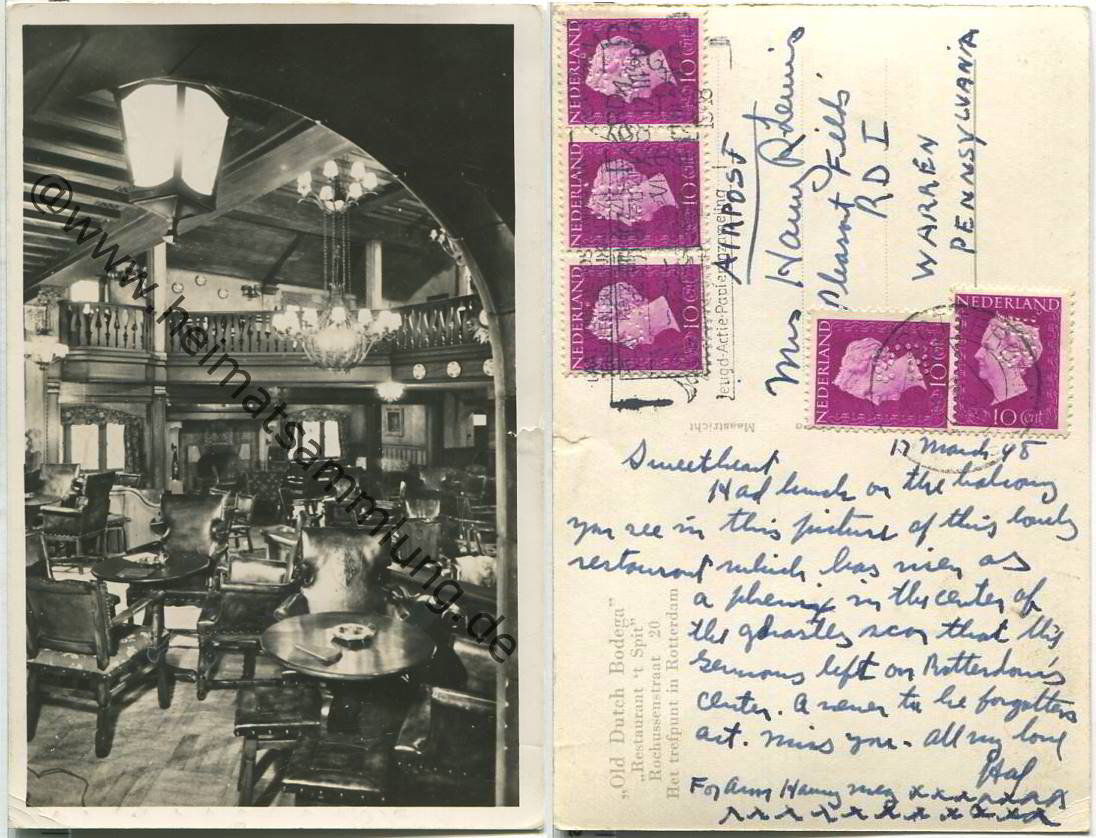 @www.heimatsammlung.de
NEDERLAND
10 Cnt
NEDERLAND
10 Cnt
NEDERLAND
10 Cnt
NEDERLAND
10 Cnt
NEDERLAND
10 Cnt
AIRPOST
Mrs Harry
Pleasant Fields
RD I
WARREN
PENNSYLVANIA
Jeugd-Actie-Papierinzameling
Maastricht
17 March 48
Sweetheart
Had lunch on the balcony
you see in this picture of this lovely
restaurant which has risen as
a phenix in the center of
the ghastly scar that the
Germans left on Rotterdam's
center. A never to be forgotten
act. Miss you - all my love
Hal
For Harry xxxxxxxx
xxxxxxxxxxxxx
„Old Dutch Bodega”
„Restaurant 't Spit”
Rochussenstraat 20
Het trefpunt in Rotterdam